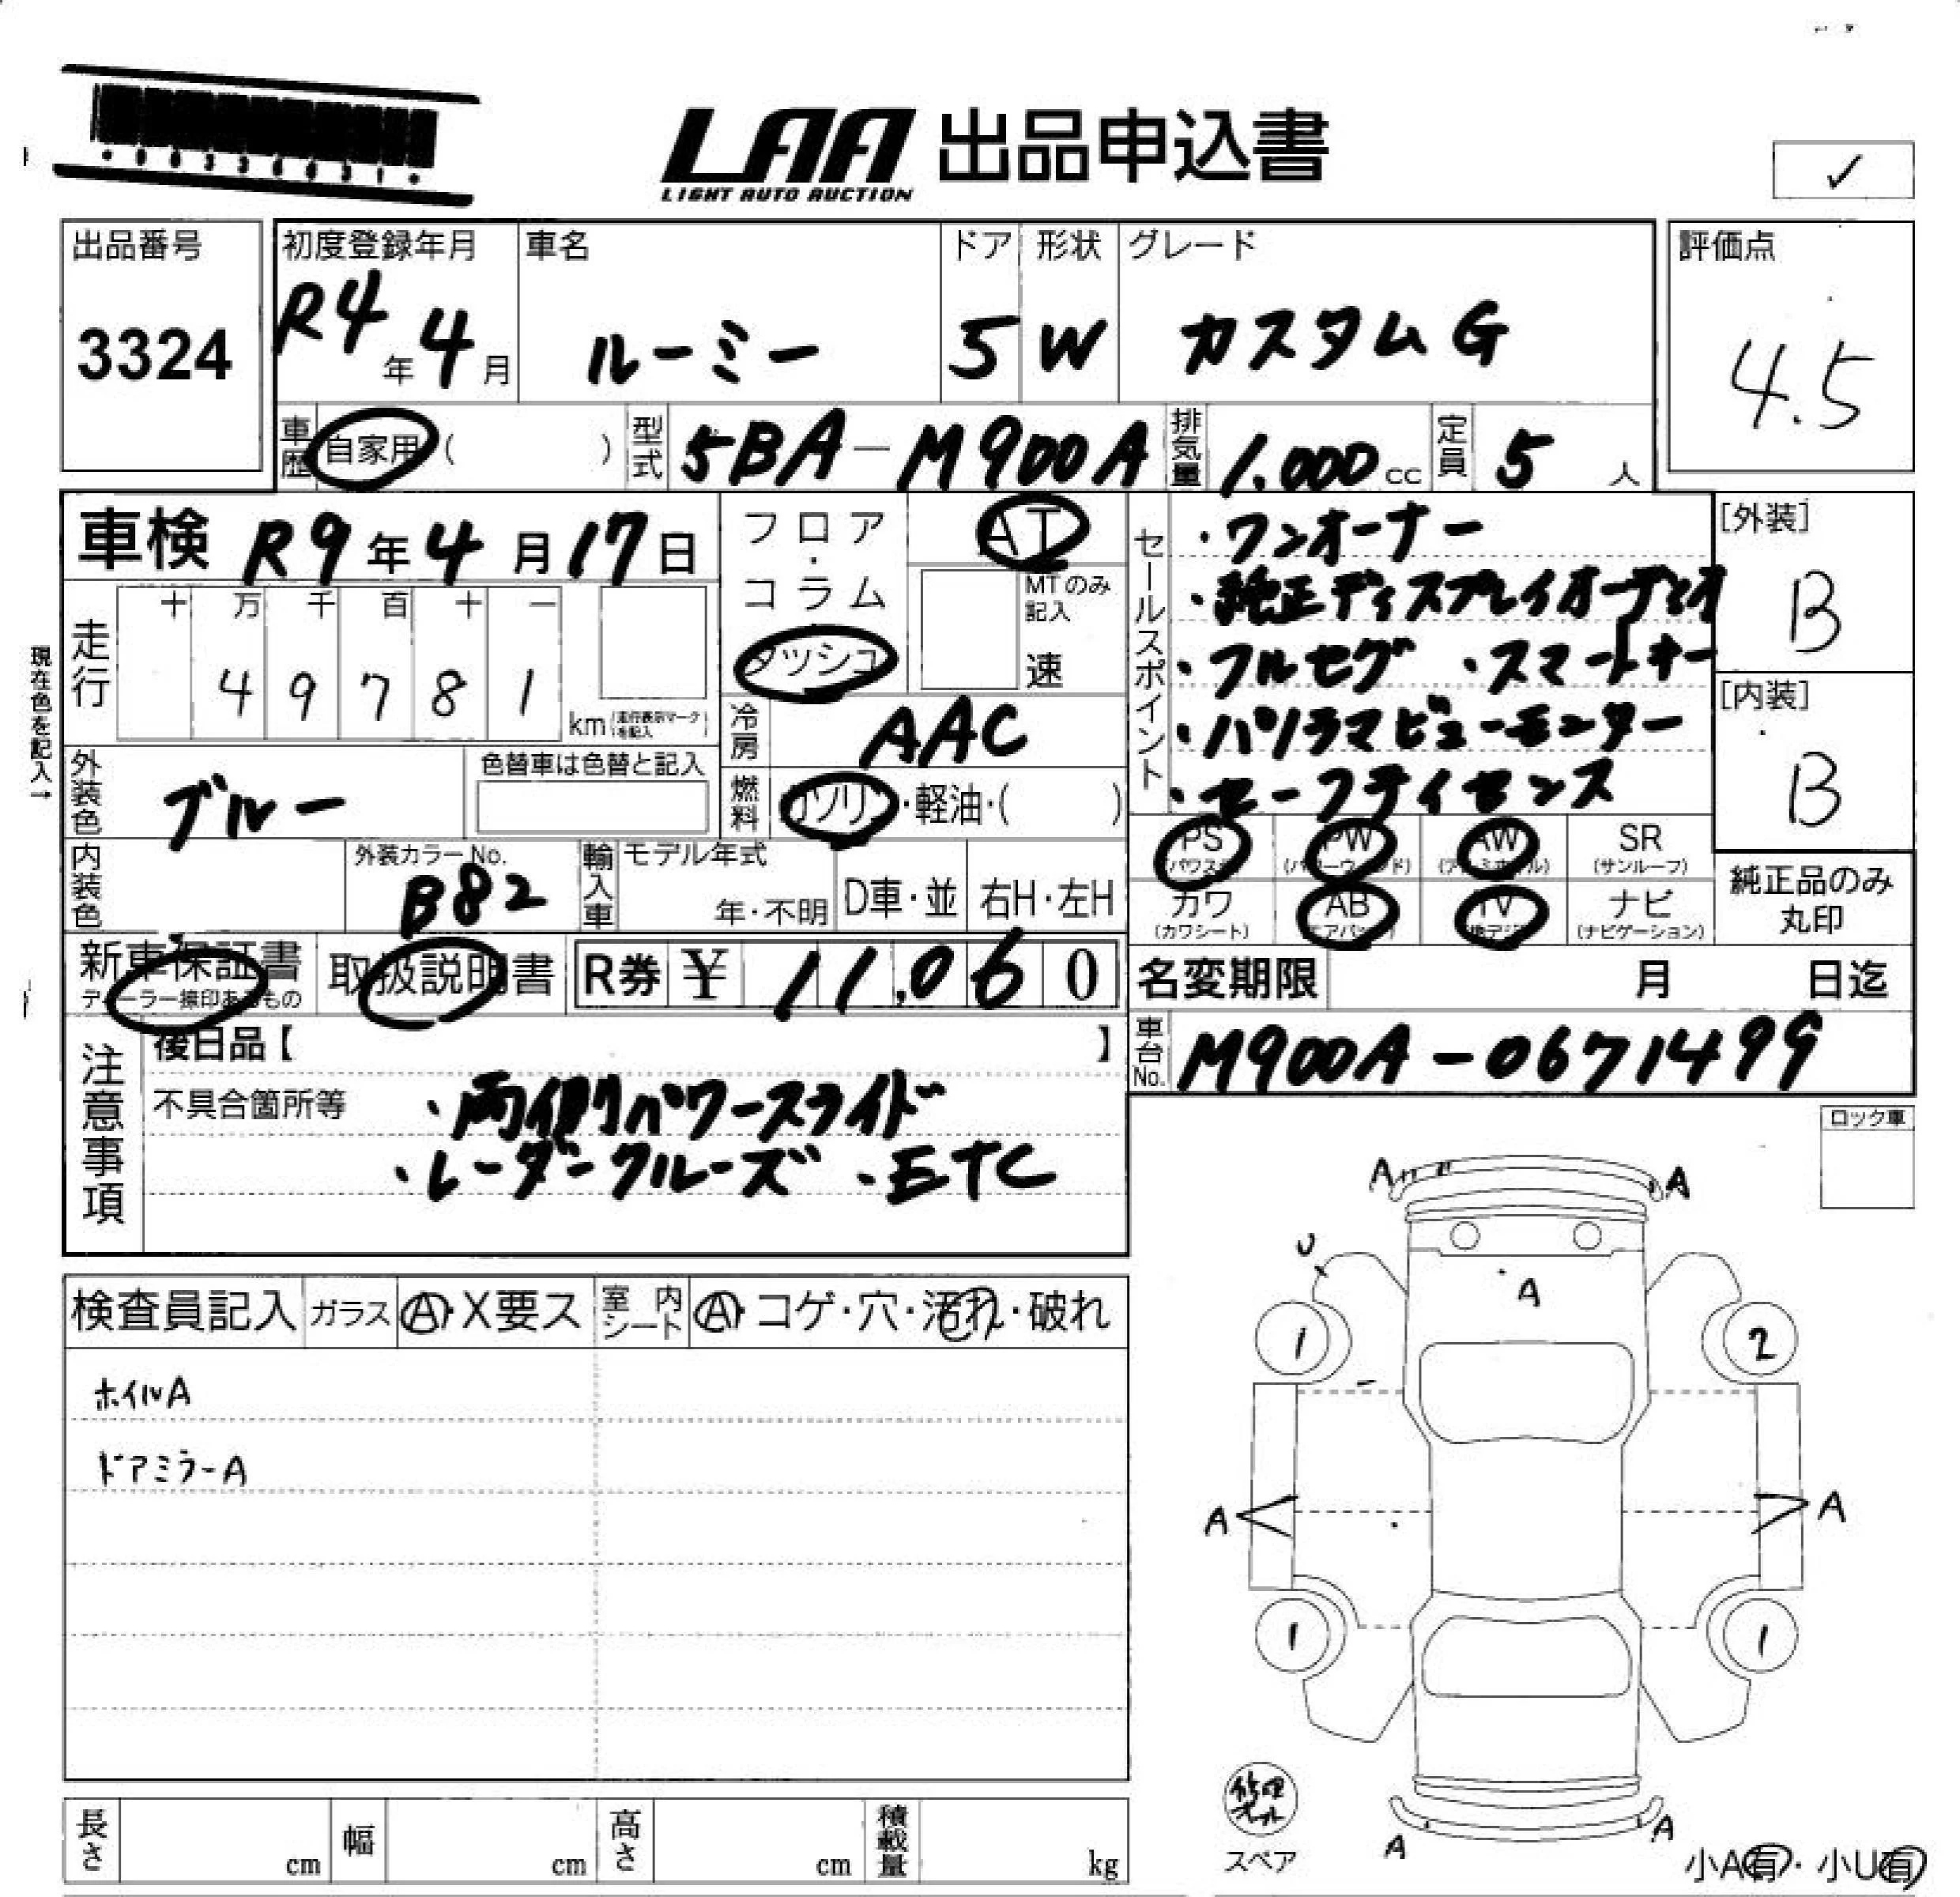 LAA 出品申込書
LIGHT AUTO AUCTION
✓
出品番号
3324
初度登録年月
R4年4月
車名
ルーミー
ドア
5
形状
W
グレード
カスタムG
評価点
4.5
車歴 自家用 ( )
型式 5BA-M900A
排気量 1.000cc
定員 5人
車検 R9年4月17日
フロア・コラム
ダッシュ
AT
MTのみ記入
速
現在色を記入→
走行 十 万 千 百 十 一
49781 km (走行表示マークを記入)
冷房 AAC
外装色 ブルー
色替車は色替と記入
燃料 ガソリン・軽油・( )
内装色
外装カラーNo.
B82
輸入車 モデル年式
年・不明 D車・並 右H・左H
セールスポイント
・ワンオーナー
・純正ディスプレイオーディオ
・フルセグ ・スマートキー
・パノラマビューモニター
・セーフティセンス
[外装]
B
[内装]
B
PS (パワステ) PW (パワーウィンド) AW (アルミホイル) SR (サンルーフ)
カワ (カワシート) AB (エアバッグ) TV ナビ (ナビゲーション)
純正品のみ丸印
新車保証書
ディーラー捺印あるもの
取扱説明書
R券 ¥ 11,060
名変期限 月 日迄
車台No. M900A-0671499
注意事項
後日品【 】
不具合箇所等
・両側パワースライド
・レーダークルーズ ・ETC
ロック車
検査員記入 ガラス A・X要ス 室内シート A・コゲ・穴・汚れ・破れ
ホイルA
ドアミラーA
A A
U
A
1 2
A A
1 1
修理キット
スペア
A A
小A有・小U有
長さ cm 幅 cm 高さ cm 積載量 kg